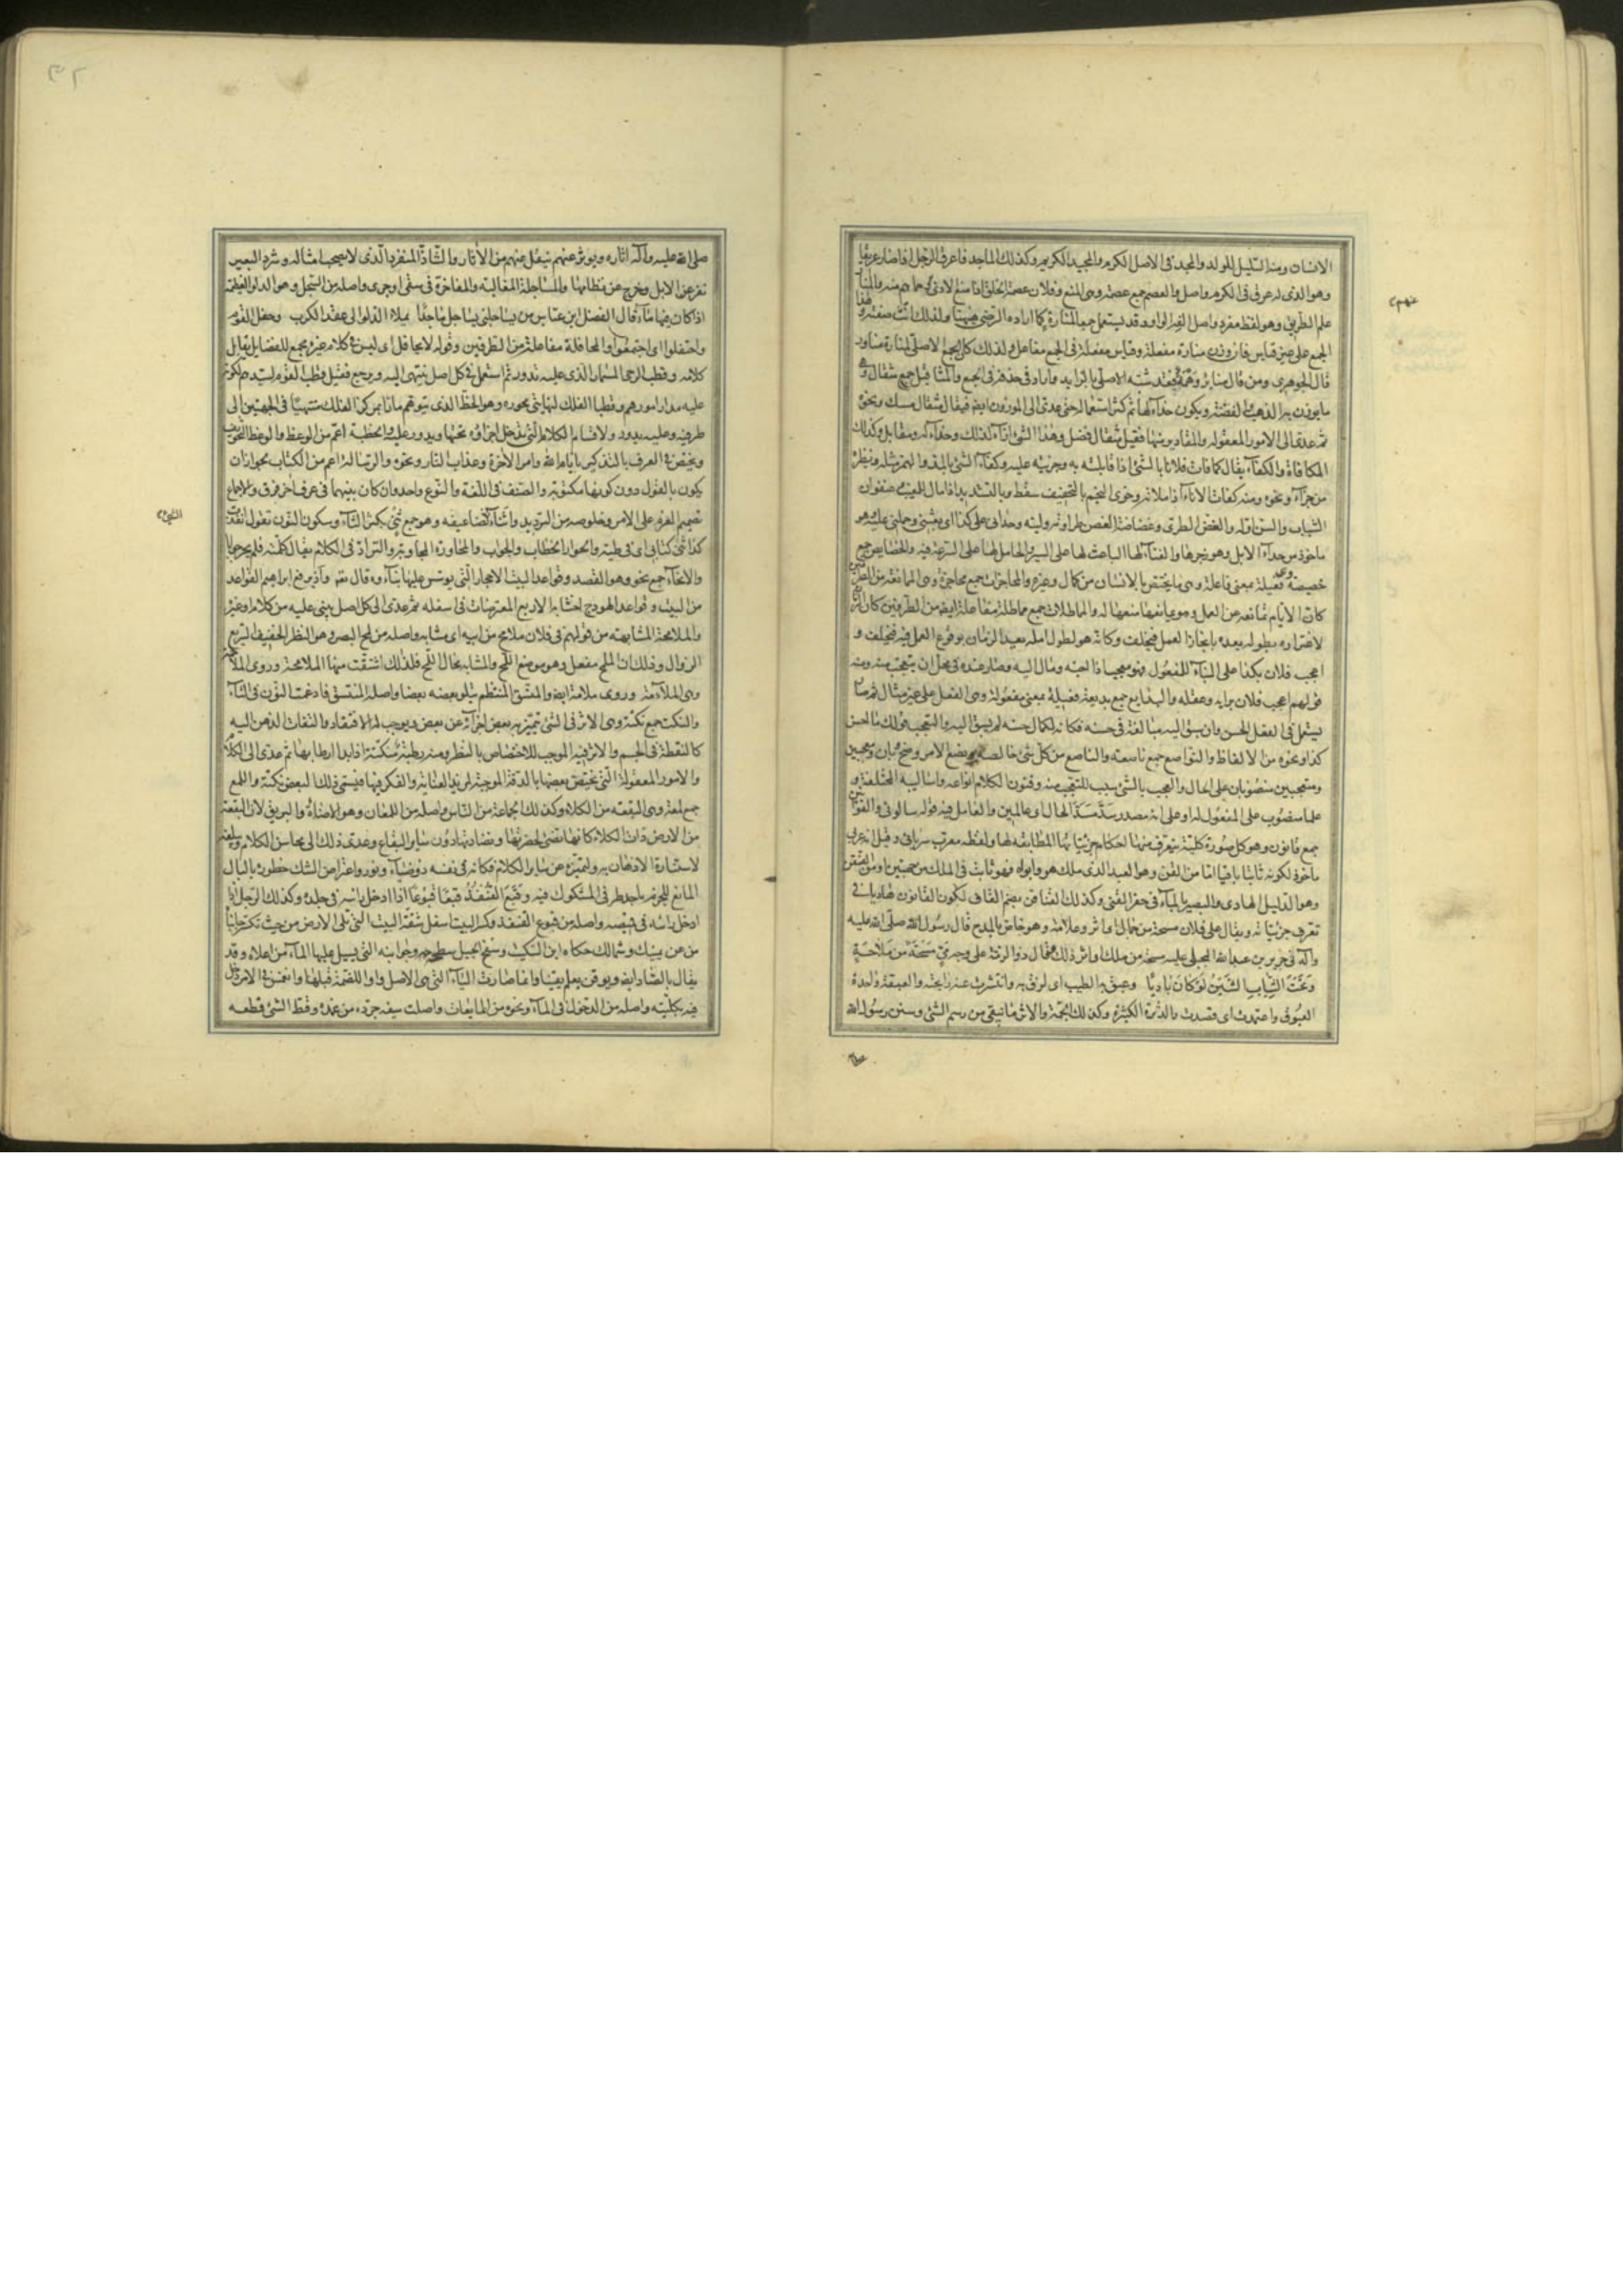 الانسان ومنه السليل للولد والمجد في الاصل الكرم والمجيد الكريم وكذلك الماجد فاعرق الرجل اذا صار عريقا
وهو الذى له عرق في الكرم واصل والعصم جمع عصمة وهى المنع وفلان عصمة الخلق
علم الطريق وهو لفظ مفرد واصل الفه الواو وقد يستعمل جمع المنارة كما اراده الرضى هيهنا ولذلك انّث صفته وهذا
الجمع على غير قياس فان وزن منارة مفعلة وقياس مفعلة في الجمع مفاعل ولذلك كان الجمع الاصلى لمنارة مناور
قال الجوهرى ومن قال منائر وهمز فقد شبّه الاصلى بالزايد والمثاقيل جمع مثقال وهى
ما يوزن به الذهب والفضة ويكون حذآء لها ثم كثر استعماله حتى عدى الى الموزون ايضا فيقال مثقال مسك ونحوه
ثم عدى الى الامور المعقولة والمقادير منها فقيل مثقال فضل وهذا الشئ ازآء لذلك وحذآء له ومقابل وكذلك
المكافاة والكفآء يقال كافات فلانا بالشئ اذا قابلته به وجزيته عليه وكفآء الشئ بالمد والهمز مثله ونظيره
من جزآء ونحوه ومنه كفات الانآء وخوى النجم بالتخفيف سقط وبالتشديد اذا مال للمغيب
الشباب والسن اوله والغض الطرى وغضاضة الغصن طراوته ولينه وحدانى على كذا اى بعثنى وحملنى عليه وهو
ماخوذ من حدآء الابل وهو زجرها والغنآء لها الباعث لها على السير والحامل لها على السرعة فيه والخصايص جمع
خصيصة وهى فعيلة بمعنى فاعلة وهى ما يختص بالانسان من كمال وغيره والمحاجزات جمع محاجزة وهى الممانعة من الطرفين
كانّ الايام تمانعه عن العمل وهو يمانعها منعها له والمماطلات جمع مماطلة مفاعلة ايضا من الطرفين كان الانسان
لاغتراره بطوله يعده بانجاز العمل فيخلف وكانه هو لطول امله يعيد الزمان بوقوع العمل فيه فيخلف و
اعجب فلان بكذا على البنآء للمفعول فهو معجب اذا احبه ومال اليه وصار عنده في محل ان يتعجب منه ومنه
قولهم اعجب فلان برايه وعقله والبدايع جمع بديعة فعيلة بمعنى مفعولة وهى الفعل على غير مثال ثم صار
يستعمل في الفعل الحسن وان سبق اليه مبالغة في حسنه فكانه لكمال حسنه لم يسبق اليه والتعجب قولك ما احسن
كذا ونحوه من الالفاظ والنواصع جمع ناصعة والناصع من كل شئ خالصه ونصع الامر وضح وبان ومعجبين
ومتعجبين منصوبان على الحال والعجب بالشئ سبب للتعجب منه وفنون الكلام انواعه واساليبه المختلفة و
علما منصوب على المفعول له او على انه مصدر سدّ مسدّ الحال اى عالمين والعامل فيه قوله سالونى والقوانين
جمع قانون وهو كل صورة كلية يتعرف منها احكام جزئياتها المطابقة لها ولفظه معرب سريانى وقيل انه عربى
ماخوذ لكونه ثابتا باقيا امّا من القن وهو العبد الذى ملك هو وابواه فهو ثابت في الملك من جهتين او من القنقن
وهو الدليل الهادى والبصير بالمآء في حفر القنى وكذلك القناقن بضم القاف لكون القانون هاديا في
تعرف جزئياته ويقال على فلان مسحة من جمال اى اثر وعلامة وهو خاص بالمدح قال رسول الله صلى الله عليه
وآله في جرير بن عبد الله البجلى عليه مسحة ملك اى اثر ذلك وقال ذو الرمة على وجه مىّ مسحة من ملاحة
وتحت الثياب الشين لو كان باديا وعبق به الطيب اى لزق به وانتشرت عنه رايحته والعبقة واحدة
العبوق واعتمدت اى قصدت والدثرة الكثيرة وكذلك الجمة والاثر ما يبقى من رسم الشئ وسنن رسول الله
صلى الله عليه وآله اثاره ويوثر عنهم ينقل عنهم من الاثار والشاذّ المنفرد الذى لا يصحب امثاله وشرد البعير
نفر عن الابل وخرج عن نظامها والمساجلة المغالبة والمفاخرة في سقى او جرى واصله من السجل وهو الدلو العظيمة
اذا كان فيها مآء قال الفضل ابن عباس من يساجلنى يساجل ماجدا يملاء الدلو الى عقد الكرب وحفل القوم
واحتفلوا اى اجتمعوا والمحافلة مفاعلة من الطرفين وقوله لا يحافل اى ليس في كلام غيره مجمع للفضايل يقابل
كلامه وقطب الرحى المسمار الذى عليه تدور ثم استعمل في كل اصل ينتهى اليه ويرجع فقيل قطب القوم لسيدهم لكونه
عليه مدار امورهم وقطبا الفلك نهايتى محوره وهو الخط الذى يتوهم مارّا بمركز الفلك منتهيا في الجهتين الى
طرفيه وعليه يدور والاقسام الكلام التى تدخل اجزاؤه تحتها ويدور عليه والخطبة اعم من الوعظ والوعظ التخويف
ويختص في العرف بالتذكير بايام الله وامر الآخرة وعذاب النار ونحوه والرسالة اعم من الكتاب بجواز ان
يكون بالقول دون كونها مكتوبة والصنف في اللغة والنوع واحد وان كان بينهما في عرف اخر فرق والاجماع
تصميم العزم على الامر وخلوصه من الترديد واثنآء تضاعيفه وهو جمع ثنى بكسر الثآء وسكون النون تقول انفذت
كذا ثنى كتابى اى في طيته والحوار الخطاب والجواب والمحاورة المجاوبة والترادّ في الكلام يقال كلمته فلم يحر جوابا
والانحآء جمع نحو وهو القصد وقواعد البيت الاحجار التى يوسس عليها بنآؤه قال تعه واذ يرفع ابرهيم القواعد
من البيت وقواعد الهودج اخشابه الاربع المعترضات في سفله ثم عدى الى كل اصل يبنى عليه من كلام او غيره
والملامحة المشابهة من قولهم في فلان ملامح من ابيه اى مشابه واصله من لمح البصر وهو النظر الخفيف السريع
الزوال وذلك ان الملمح مفعل وهو موضع اللمح والمشابه محال اللمح فلذلك اشتقت منها الملامحة وروى الملاحمة
وهى الملآءمة وروى ملامة ايضا والمتسق المنتظم يتلو بعضه بعضا
والنكت جمع نكتة وهى الاثر في الشئ تميز به بعض اجزآئه عن بعض ويوجب له الافتقاد والتفات الذهن اليه
كالنقطة في الجسم والاثر فيه الموجب للاختصاص بالنظر ومنه رطبة منكتة اذا بدا ارطابها ثم عدى الى الكلام
والامور المعقولة التى يختص بعضها بالدقة الموجبة لمزيد العناية والفكر فيها فيسمى ذلك البعض نكتة واللمع
جمع لمعة وهى البقعة من الكلاء وكذلك الجماعة من الناس واصله من اللمعان وهو الاضآءة والبريق لان البقعة
من الارض ذات الكلاء كانها تضئ لخضرتها ونضارتها دون ساير البقاع وعدى ذلك الى محاسن الكلام وبليغه
لاستنارة الاذهان به ولتميزه عن ساير الكلام فكانه في نفسه ذو ضيآء ونور واعتراض الشك خطوره بالبال
المانع للجزم باحد طرفى المشكوك فيه وقبع القنفذ قبعا قبوعا اذا ادخل راسه في جلده وكذلك الرجل اذا
ادخل راسه في قميصه واصله من قبوع القنفذ وكسر البيت اسفل شقة البيت التى تلى الارض من حيث تكسر جانباه
من عن يمينك وشمالك حكاه ابن السكيت وسفح الجبل سطحه وجوانبه التى يسيل عليها المآء من اعلاه وقد
يقال بالصاد ايضا ويوقن يعلم يقينا وانما صارت اليآء التى هى الاصل واوا للضمة قبلها وانغمس في الامر دخل
فيه بكليته واصله من الدخول في المآء ونحوه من المايعات واصلت سيفه جرّده من غمده وقط الشئ قطعه